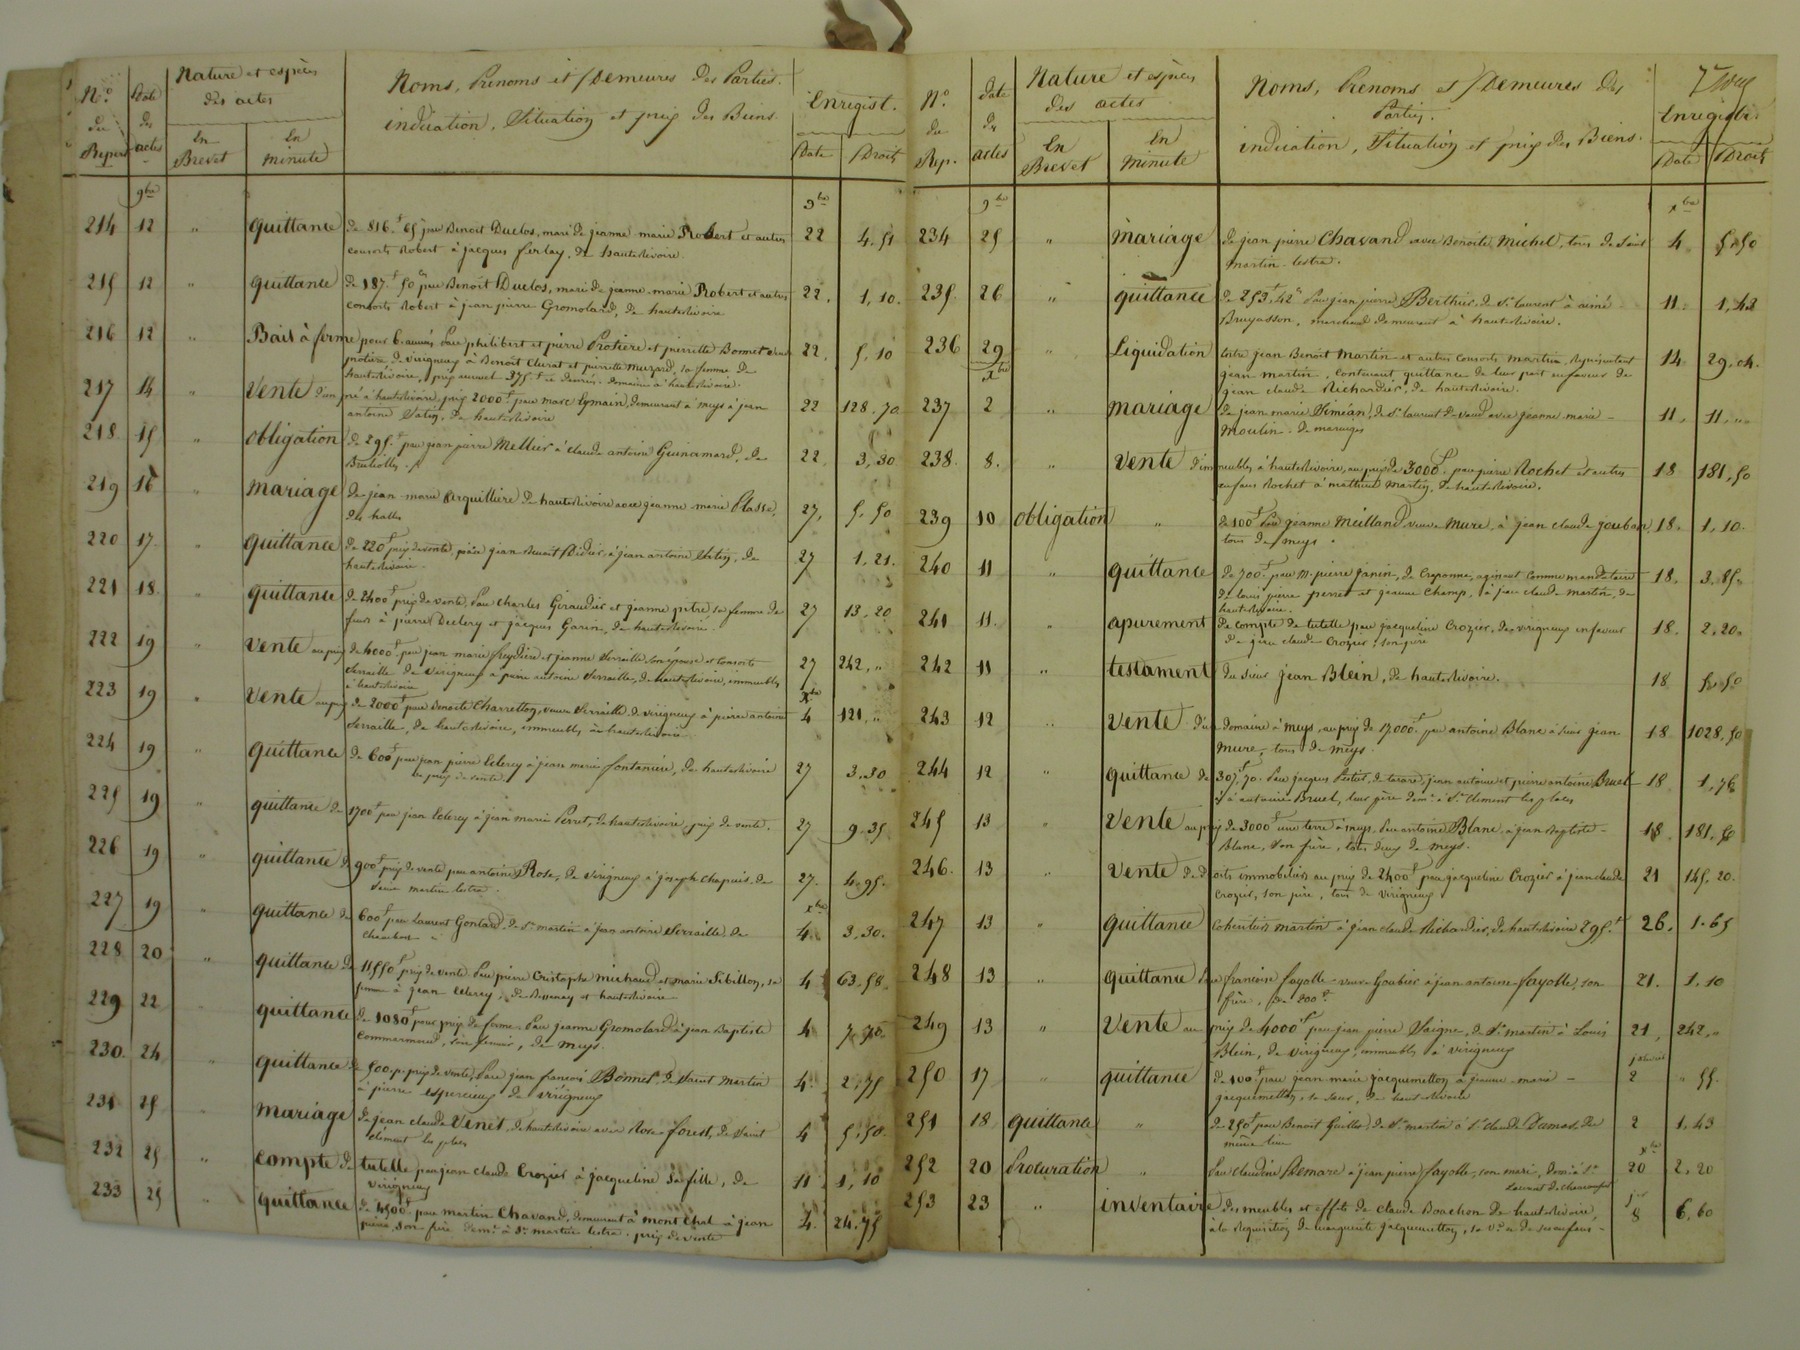 N.o Date Nature et espèces Noms, Prénoms et Demeures des Parties. Enregist.
du des des actes indication, Situation et prix des Biens.
Repert. actes En Brevet En minute Date Droits
9bre 9bre
214 12 " quittance de 816.f 65 par Benoit Duclos, mari de jeanne marie Robert et autres 22 4.51
consorts Robert à jacques ferlay, de hauterivoire.
215 12 " quittance de 187.f 50 par Benoit Duclos, mari de jeanne marie Robert et autres 22. 1,10.
consorts Robert à jean pierre Gromolard, de hauterivoire
216 12 " Bail à ferme pour 6 années par philibert et pierre Protiere et pierrette Bonnet veuve 22. 5,10
protiere de virigneux à Benoit Clurat et pierrette muzard, sa femme de
hauterivoire, prix annuel 375f et denrées. domaine à hauterivoire.
217 14 " Vente d'un pré à hauterivoire, prix 2000f par marc Eymain, demeurant à meys à jean 22 128.70
antoine de hauterivoire
218 15 " obligation de 295.f par jean pierre Mellier à claude antoine Guinamard, de 22 3,30
Brullioles
219 16 " mariage de jean marie Perquilliere de hauterivoire avec jeanne marie Blasse, 27, 5,50
des halles
220 17. " quittance de 220f prix de vente, par jean Benoit Didier, à jean antoine de 27 1,21.
hauterivoire.
221 18. " quittance de 2400f prix de vente, par charles Giraudier et jeanne pitre sa femme de 27 13,20
feurs à pierre Declery et jacques Garin, de hauterivoire.
222 19 " Vente au prix de 4000f par jean marie et jeanne Serraille son épouse et consorts 27 242,"
Serraille de virigneux à pierre antoine Serraille, de hauterivoire, immeubles
à hauterivoire Xbre
223 19 " Vente au prix de 2000f par Benoite Charretton, veuve Serraille de virigneux à pierre antoine 4 121,"
Serraille, de hauterivoire, immeubles à hauterivoire
224 19 " quittance de 600f par jean pierre leclercy à jean marie fontaniere, de hauterivoire 27 3.30
prix de vente
225 19 " quittance de 1700f par jean leclercy à jean marie Perret, de hauterivoire, prix de vente. 27 9.35
226 19 " quittance de 900f prix de vente par antoine Rose, de virigneux à joseph chapuis de 27. 4.95.
saint martin lestra. Xbre
227 19 " quittance de 600f par laurent Gontard, de St martin à jean antoine Serraille, de 4. 3,30.
228 20 " quittance de 11550f prix de vente par pierre Cristophe michaud et marie Sibillon, sa 4 63.58.
femme à jean leclercy, de et hauterivoire
229 22 quittance de 1080f pour prix de ferme par jeanne Gromolard à jean Baptiste 4 7,70.
son fermier, de meys.
230 24 " quittance de 500 f. prix de vente, par jean françois Bonnet de Saint martin 4. 2,75
à pierre de virigneux
231 25 " mariage de jean claude Venet, de hauterivoire avec Rose forest, de Saint 4 5,50.
Clément les places
232 25 " compte de tutelle par jean claude Crozier à jacqueline sa fille, de 11 1,10
virigneux
233 25 " quittance de 4500f par martin Chavand, demeurant à mont Chal à jean 4. 24.75
pierre, son frère demt à St martin lestra. prix de vente
N.o date Nature et espèces Noms, Prénoms et Demeures des
du des des actes Parties. Enregistr.
Rep. actes En Brevet En Minute indication, Situation et prix des Biens. Date Droits
9bre Xbre
234 25 " mariage de jean pierre Chavand avec Benoite Michel, tous de Saint 4 5.50
martin lestra.
235. 26 " quittance de 253f.42c par jean pierre Berthier, de St laurent à aimé 11. 1,43
Bruyasson, marchand demeurant à hauterivoire.
236 29 " Liquidation entre jean Benoit martin et autres consorts martin, représentant 14 29,04.
Xbre jean martin, contenant quittance de leur part en faveur de
jean claude Richardier, de hauterivoire.
237 2 " mariage de jean marie Siméan, de St laurent de vaud avec jeanne marie 11, 11,"
Moulin de maringes
238. 8. " Vente d'immeubles à hauterivoire, au prix de 3000f par pierre Rochet et autres 18 181,50
enfans Rochet à mathieu martin, de hauterivoire.
239 10 obligation " de 100f par jeanne meilland veuve Mure, à jean claude joubar 18. 1,10.
tous de meys.
240 11 " quittance de 700.f par M. pierre janin, de Craponne, agissant comme mandataire 18. 3.85.
de louis pierre perret et jeanne Champ, à jean claude martin, de
hauterivoire.
241 11. " apurement de compte de tutelle par jacqueline Crozier, de virigneux en faveur 18. 2,20.
de jean claude Crozier, son père
242 11 " testament du Sieur jean Blein, de hauterivoire. 18 5.50
243 12 " Vente d'un domaine à meys, au prix de 17000.f par antoine Blanc à Sieur jean 18 1028.50
mure, tous de meys.
244 12 " quittance de 307f70. par jacques de tarare, jean antoine et pierre antoine Bruel 18 1,76
à antoine Bruel, leur père demt à St Clément les places
245 13 " Vente au prix de 3000f une terre à meys, par antoine Blanc à jean Baptiste 18. 181,50
Blanc, son frère, tous deux de meys.
246. 13 " Vente de droits immobiliers au prix de 2400f par jacqueline Crozier à jean claude 21 145,20.
Crozier, son père, tous de virigneux
247 13 " quittance martin à jean claude Richardier, de hauterivoire 295.f 26. 1.65
248 13 " quittance par françoise fayolle veuve Goubier à jean antoine fayolle, son 21. 1.10
frère, de 200f.
249 13 " Vente au prix de 4000f par jean pierre Saigne, de St martin à Louis 21, 242,"
Blein, de virigneux, immeubles à virigneux
250 17 " quittance de 100f par jean marie jacquemetton à jeanne marie 2 " 55.
jacquemetton, sa sœur, de hauterivoire
251 18 quittance " de 250f par Benoit Guillot, de St martin à St claude Dumas, du 2 1.43
même lieu Xbre
252 20 Procuration " par claudine Demare à jean pierre fayolle, son mari, dem. à St 20 2,20
Laurent de chamousset
253 23 " inventaire des meubles et effets de claude Boachon de hauterivoire, 8 6,60
à la Requisition de marguerite jacquemetton, sa Ve et de ses enfans